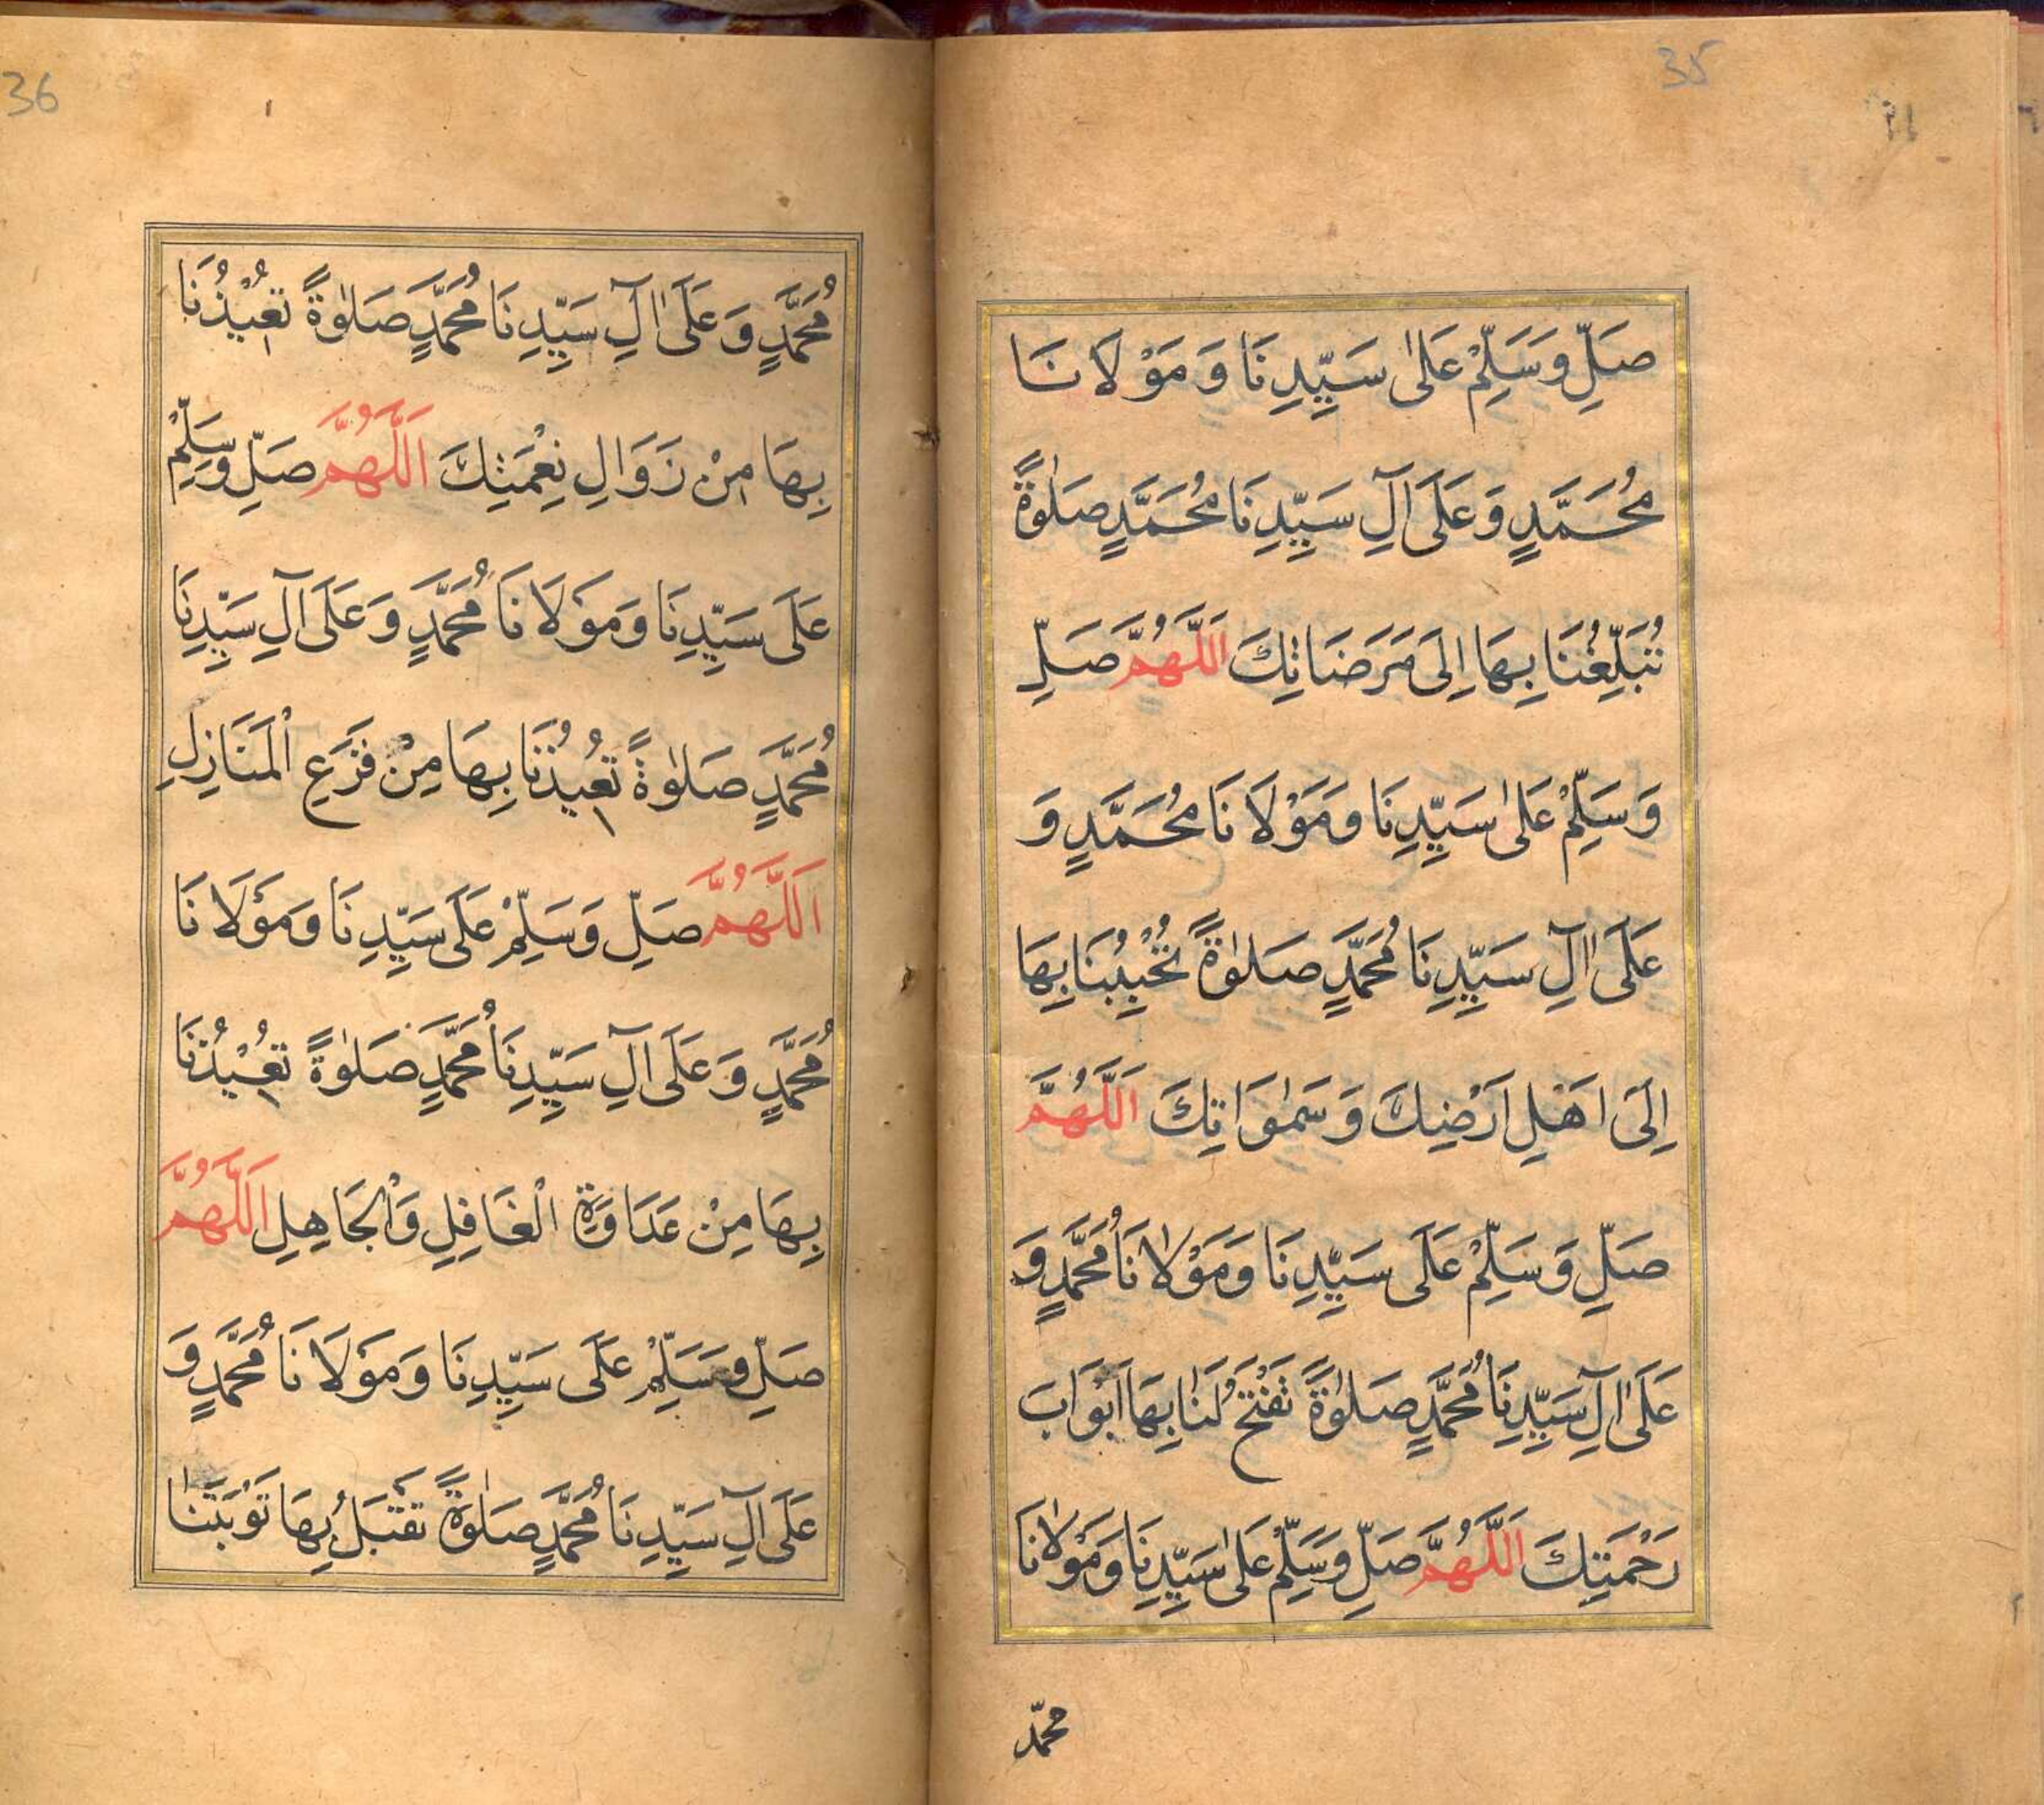 35
صَلِّ وَسَلِّمْ عَلٰى سَيِّدِنَا وَ مَوْلَانَا
مُحَمَّدٍ وَ عَلَى اٰلِ سَيِّدِنَا مُحَمَّدٍ صَلٰوةً
تُبَلِّغُنَا بِهَا اِلَى مَرَضَاتِكَ اَللّٰهُمَّ صَلِّ
وَسَلِّمْ عَلٰى سَيِّدِنَا وَمَوْلَانَا مُحَمَّدٍ وَ
عَلَى اٰلِ سَيِّدِنَا مُحَمَّدٍ صَلٰوةً تُحْبِبُنَا بِهَا
اِلَى اَهْلِ اَرْضِكَ وَ سَمٰوَاتِكَ اَللّٰهُمَّ
صَلِّ وَسَلِّمْ عَلَى سَيِّدِنَا وَمَوْلَانَا مُحَمَّدٍ وَ
عَلَى اٰلِ سَيِّدِنَا مُحَمَّدٍ صَلٰوةً تَفْتَحُ لَنَا بِهَا اَبْوَابَ
رَحْمَتِكَ اَللّٰهُمَّ صَلِّ وَسَلِّمْ عَلٰى سَيِّدِنَا وَمَوْلٰانَا
محمّد
36
مُحَمَّدٍ وَ عَلَى اٰلِ سَيِّدِنَا مُحَمَّدٍ صَلٰوةً تُعِيْذُنَا
بِهَا مِنْ زَوَالِ نِعْمَتِكَ اَللّٰهُمَّ صَلِّ وَسَلِّمْ
عَلَى سَيِّدِنَا وَمَوْلَانَا مُحَمَّدٍ وَ عَلَى اٰلِ سَيِّدِنَا
مُحَمَّدٍ صَلٰوةً تُعِيذُنَا بِهَا مِنْ فَزَعِ الْمَنَازِلِ
اَللّٰهُمَّ صَلِّ وَسَلِّمْ عَلَى سَيِّدِنَا وَمَوْلَانَا
مُحَمَّدٍ وَ عَلَى اٰلِ سَيِّدِنَا مُحَمَّدٍ صَلٰوةً تُعِيْذُنَا
بِهَا مِنْ عَدَاوَةِ الْغَافِلِ وَالْجَاهِلِ اَللّٰهُمَّ
صَلِّ وَسَلِّمْ عَلَى سَيِّدِنَا وَمَوْلَانَا مُحَمَّدٍ وَ
عَلَى اٰلِ سَيِّدِنَا مُحَمَّدٍ صَلٰوةً تَقْبَلُ بِهَا تَوْبَتَنَا